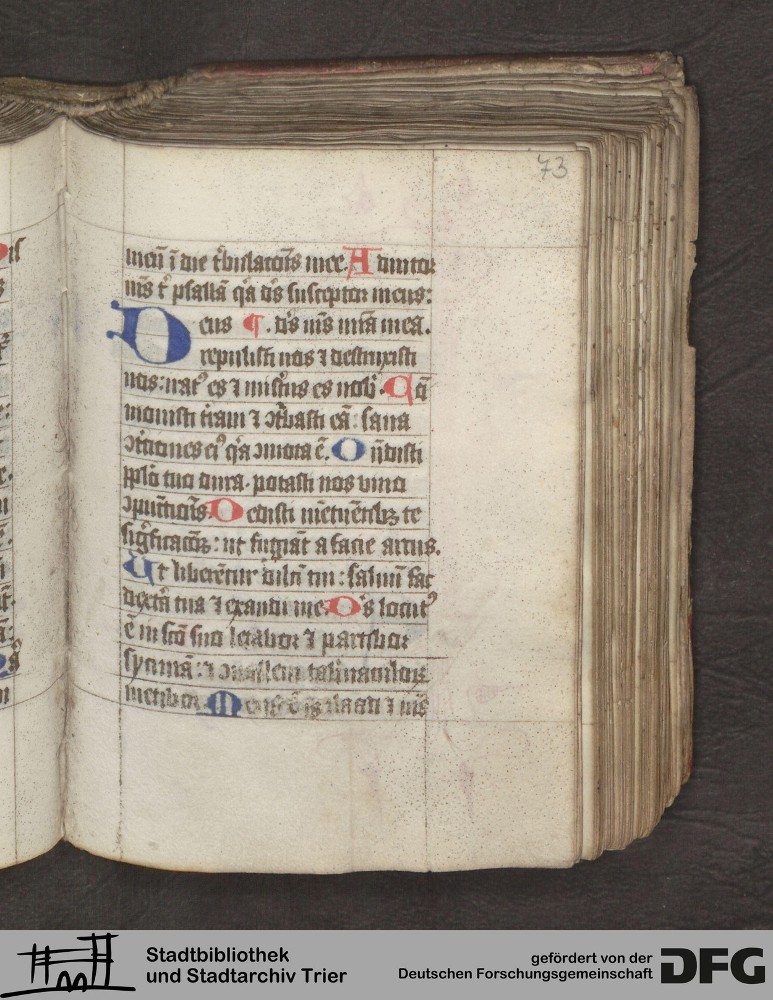 73
meū ī die tͥbulacōis mee. Adiutor
ms tͥ psallā qͥa dͣs susceptor meus:
Deus ¶. dͣs ms mīa mea.
repulisti nos ⁊ destruxisti
nos: irat⁹ es ⁊ misͥtus es nob̄. Cō
mouisti tͥram ⁊ ꝯtͥbasti eā: sana
ꝯtͥciones ei⁹ qͥa ꝯmota ē. Ondisti
pplō tuo dura. potasti nos vino
ꝯpūctiōis. Dedisti metuētibꝫ te
sigͥficacōꝫ: ut fugiāt a facie arcus.
Ut liberētur dilcī tui: saluū fac
dextā tua ⁊ exaudi me. Ds locut⁹
ē in scō suo letabor ⁊ partibor
sycimā: ⁊ ꝯuallem tabnaculoꝝ
metibor. Meus ē galaad ⁊ ms
Stadtbibliothek
und Stadtarchiv Trier
gefördert von der
Deutschen Forschungsgemeinschaft
DFG